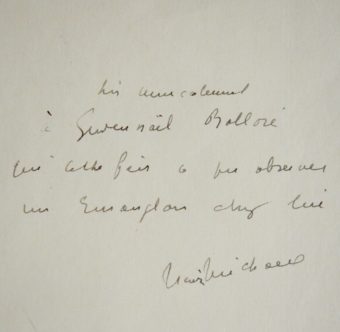 très amicalement
à Gwenn-aël Bolloré
qui cette fois a pu observer
un Emanglon chez lui
Henri Michaux